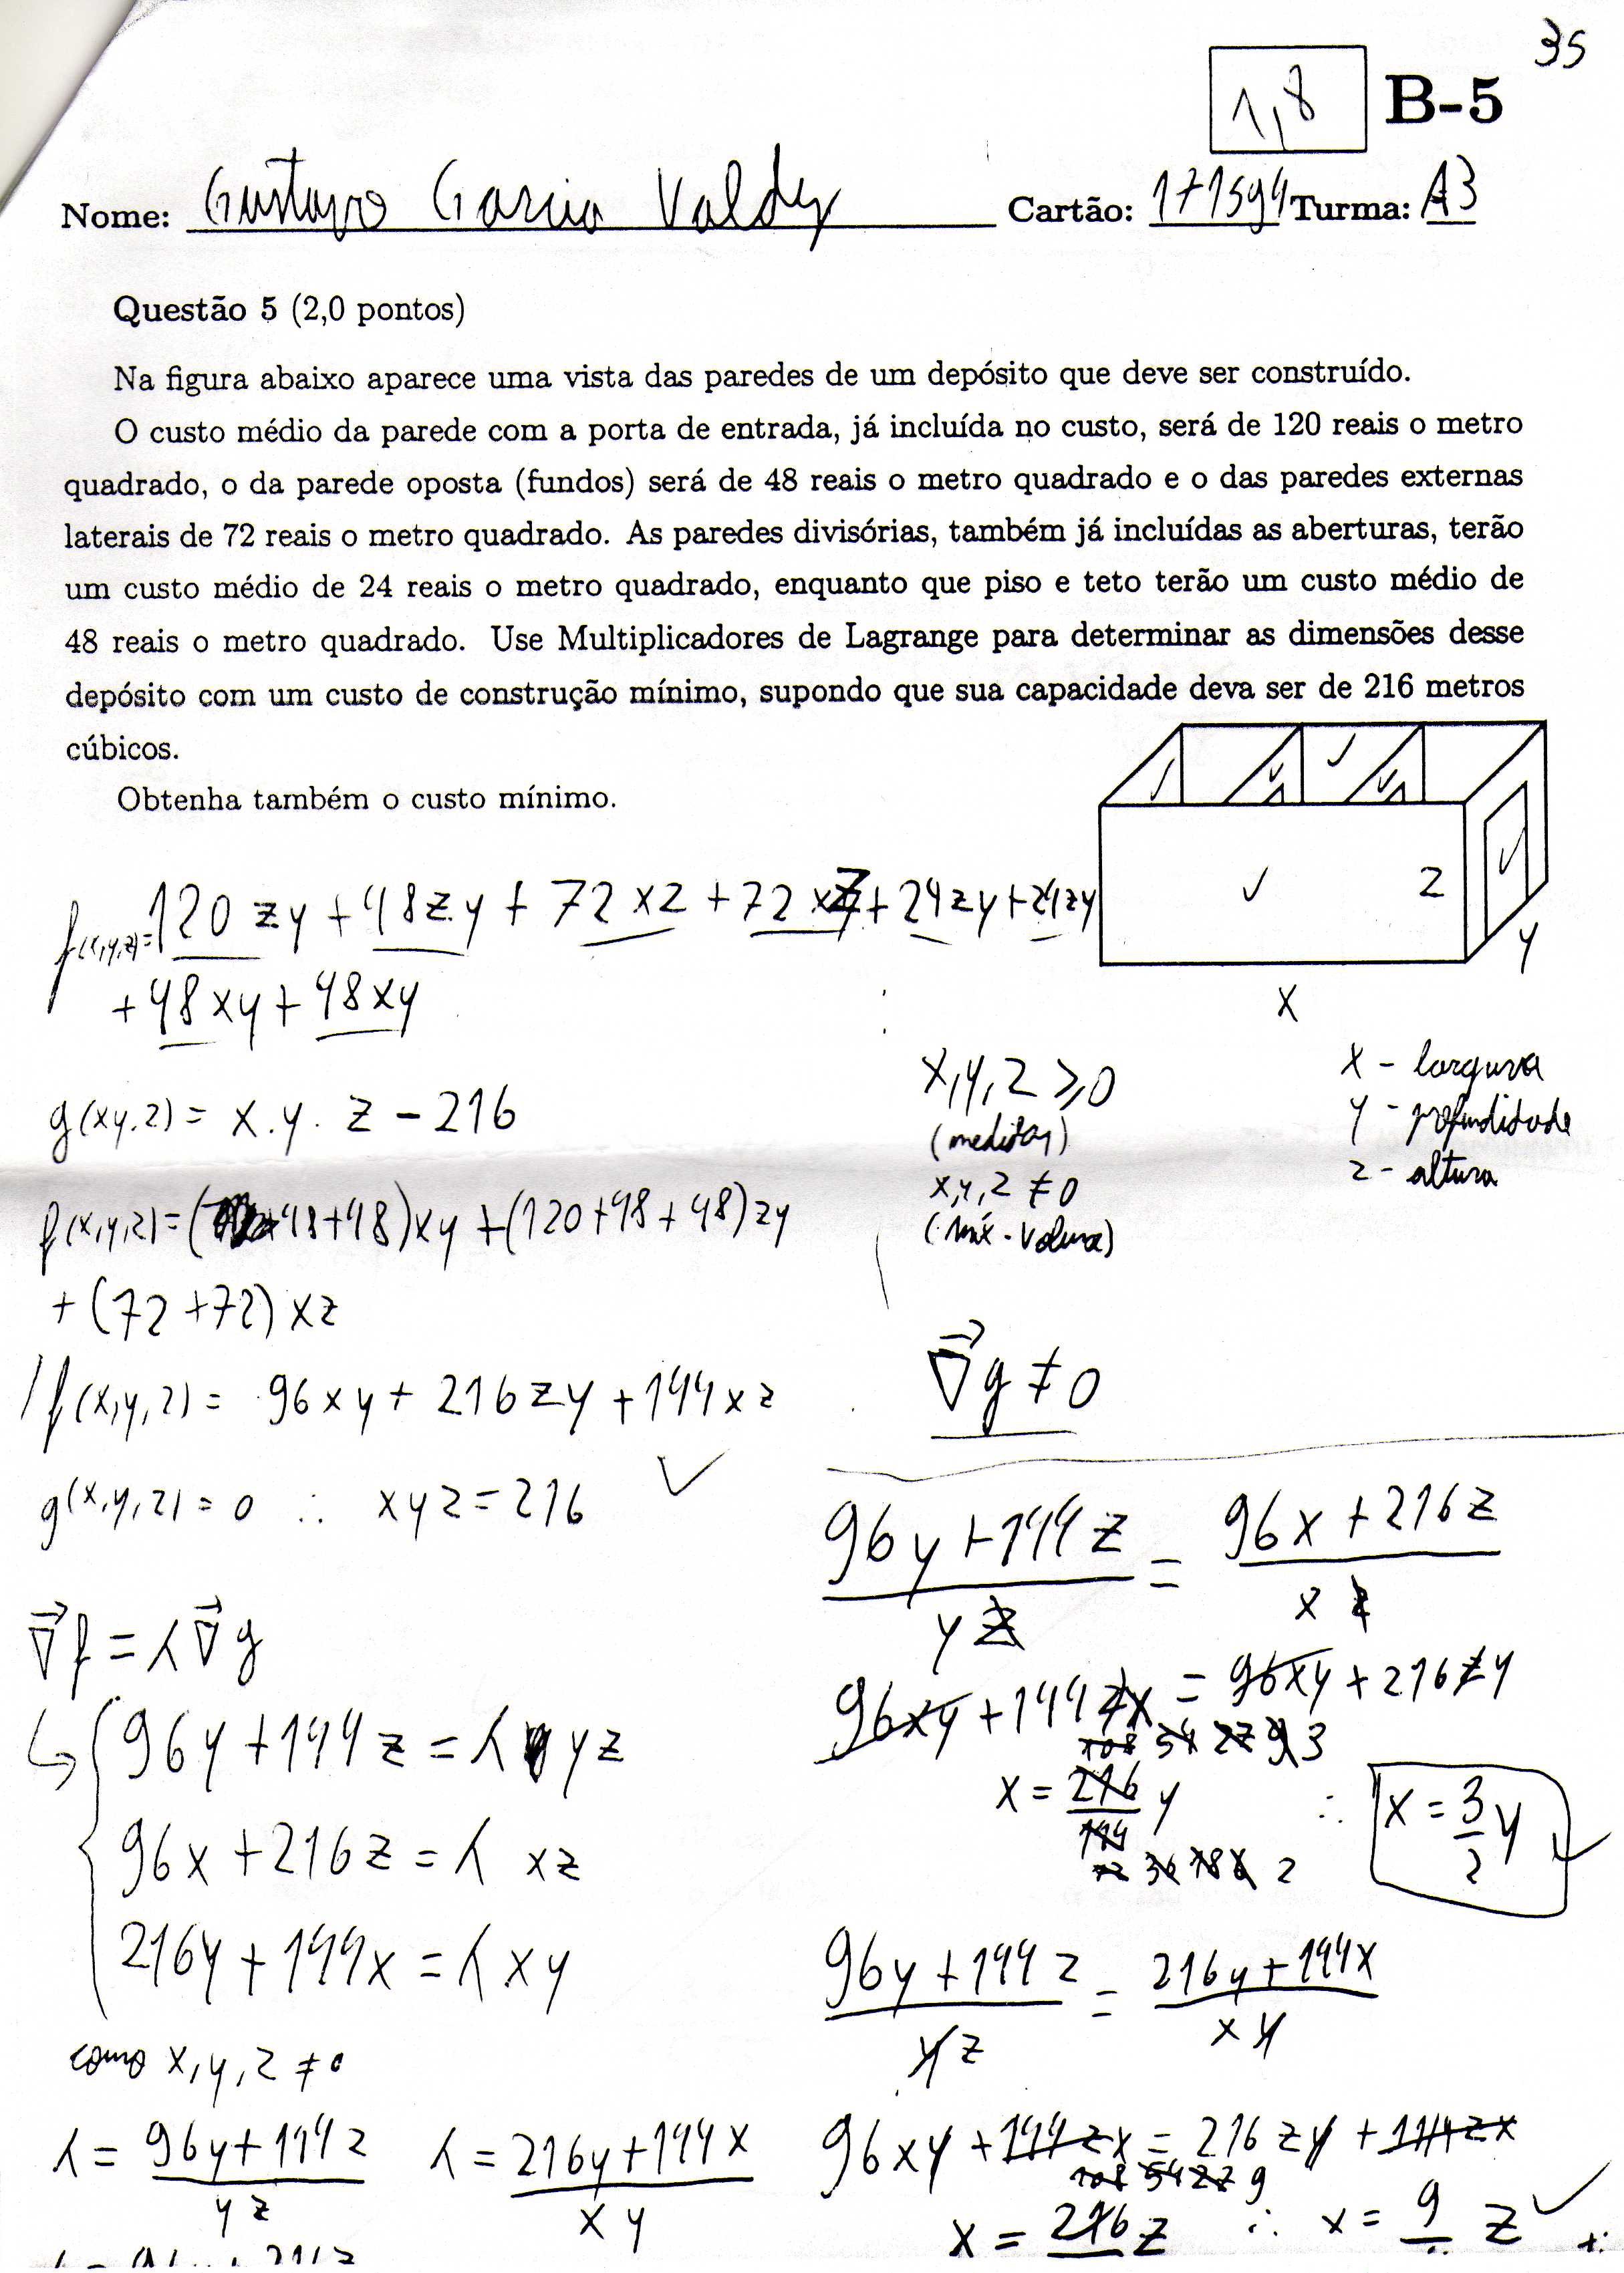 35
1,8 B-5
Nome: Gustavo Garcia Valdez Cartão: 171594 Turma: A3
Questão 5 (2,0 pontos)
Na figura abaixo aparece uma vista das paredes de um depósito que deve ser construído.
O custo médio da parede com a porta de entrada, já incluída no custo, será de 120 reais o metro
quadrado, o da parede oposta (fundos) será de 48 reais o metro quadrado e o das paredes externas
laterais de 72 reais o metro quadrado. As paredes divisórias, também já incluídas as aberturas, terão
um custo médio de 24 reais o metro quadrado, enquanto que piso e teto terão um custo médio de
48 reais o metro quadrado. Use Multiplicadores de Lagrange para determinar as dimensões desse
depósito com um custo de construção mínimo, supondo que sua capacidade deva ser de 216 metros
cúbicos.
Obtenha também o custo mínimo.
✓ ✓ ✓ ✓
✓ z ✓
y
x
f(x,y,z)= 120 zy + 48zy + 72 xz + 72 xz + 24zy + 24zy
+ 48xy + 48xy
g(xy.z) = x.y.z - 216
f(x,y,z) = (48+48)xy + (120+48+48)zy
+ (72+72)xz
f(x,y,z) = 96xy + 216zy + 144xz
g(x,y,z) = 0 ∴ xyz = 216 ✓
∇f = λ∇g
96y + 144z = λ yz
96x + 216z = λ xz
216y + 144x = λ xy
como x, y, z ≠ 0
λ = 96y+144z / yz λ = 216y+144x / xy
x,y,z ≥ 0
x,y,z ≠ 0
x - largura
y - profundidade
z - altura
∇g ≠ 0
96y + 144z / yz = 96x + 216z / xz
96xy + 144zx = 96xy + 216zy
108 54 27 9 3
x = 216/144 y ∴ x = 3/2 y ✓
72 36 18 6 2
96y + 144z / yz = 216y + 144x / xy
96xy + 144zx = 216zy + 144zx
108 54 27 9
x = 216 z ∴ x = 9 z ✓